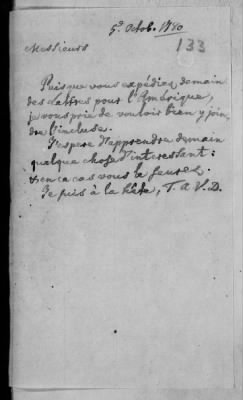 5e. Octob. 1780
133
Messieurs
Puisque vous expédiez demain
des Lettres pour l'Amérique,
je vous prie de vouloir bien y join-
dre l'incluse.
J'espere d'apprendre demain
quelque chose d'interessant:
& en ce cas vous le saurez.
Je suis à la hâte, T. a V. D.